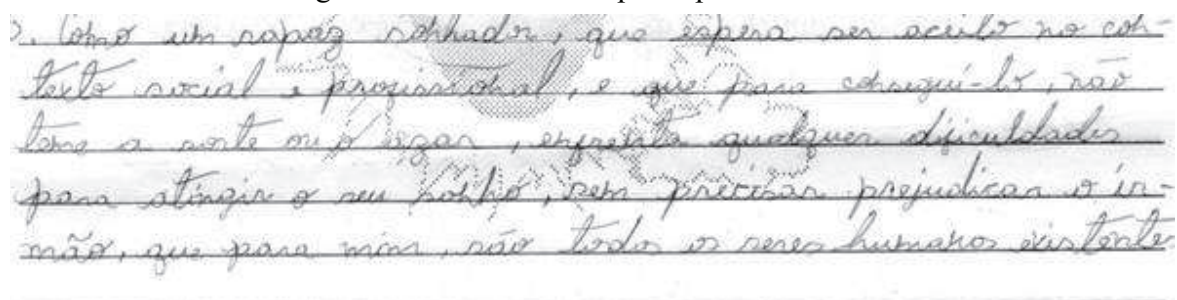 Como um rapaz sonhador, que espera ser aceito no con-
texto social e profissional, e que para conseguí-lo, não
teme a sorte ou o azar, enfrenta qualquer dificuldades
para atingir o seu sonho, sem precisar prejudicar o ir-
mão, que para mim, são todos os seres humanos existente